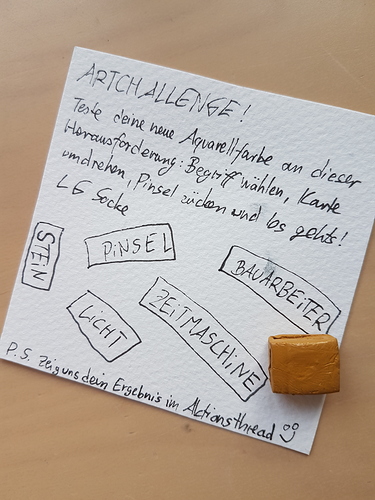 ARTCHALLENGE!
Teste deine neue Aquarellfarbe an dieser
Herausforderung: Begriff wählen, Karte
umdrehen, Pinsel zücken und los gehts!
LG Socke
STEIN
PINSEL
BAUARBEITER
LICHT
ZEITMASCHINE
P.S. Zeig uns dein Ergebnis im Aktionsthread